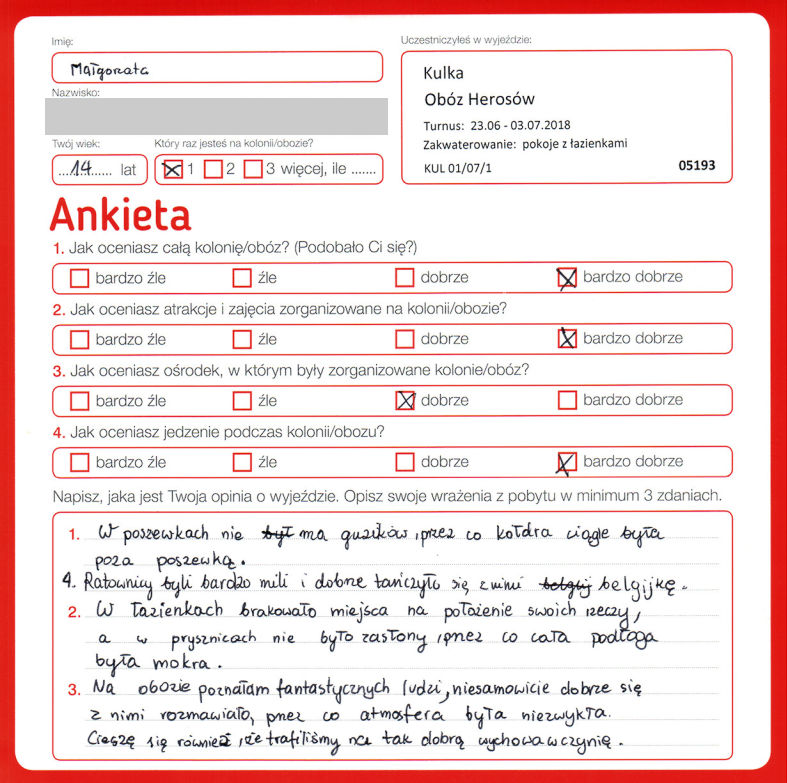 Imię:
Małgorzata
Nazwisko:
Twój wiek:
14 lat
Który raz jesteś na kolonii/obozie?
1 2 3 więcej, ile .......
Uczestniczyłeś w wyjeździe:
Kulka
Obóz Herosów
Turnus: 23.06 - 03.07.2018
Zakwaterowanie: pokoje z łazienkami
KUL 01/07/1 05193
Ankieta
1. Jak oceniasz całą kolonię/obóz? (Podobało Ci się?)
bardzo źle źle dobrze bardzo dobrze
2. Jak oceniasz atrakcje i zajęcia zorganizowane na kolonii/obozie?
bardzo źle źle dobrze bardzo dobrze
3. Jak oceniasz ośrodek, w którym były zorganizowane kolonie/obóz?
bardzo źle źle dobrze bardzo dobrze
4. Jak oceniasz jedzenie podczas kolonii/obozu?
bardzo źle źle dobrze bardzo dobrze
Napisz, jaka jest Twoja opinia o wyjeździe. Opisz swoje wrażenia z pobytu w minimum 3 zdaniach.
1. W poszewkach nie był ma guzików, przez co kołdra ciągle była
poza poszewką.
4. Ratownicy byli bardzo mili i dobrze tańczyło się z nimi belgijkę.
2. W łazienkach brakowało miejsca na położenie swoich rzeczy,
a w prysznicach nie było zasłony, przez co cała podłoga
była mokra.
3. Na obozie poznałam fantastycznych ludzi, niesamowicie dobrze się
z nimi rozmawiało, przez co atmosfera była niezwykła.
Cieszę się również, że trafiliśmy na tak dobrą wychowawczynię.